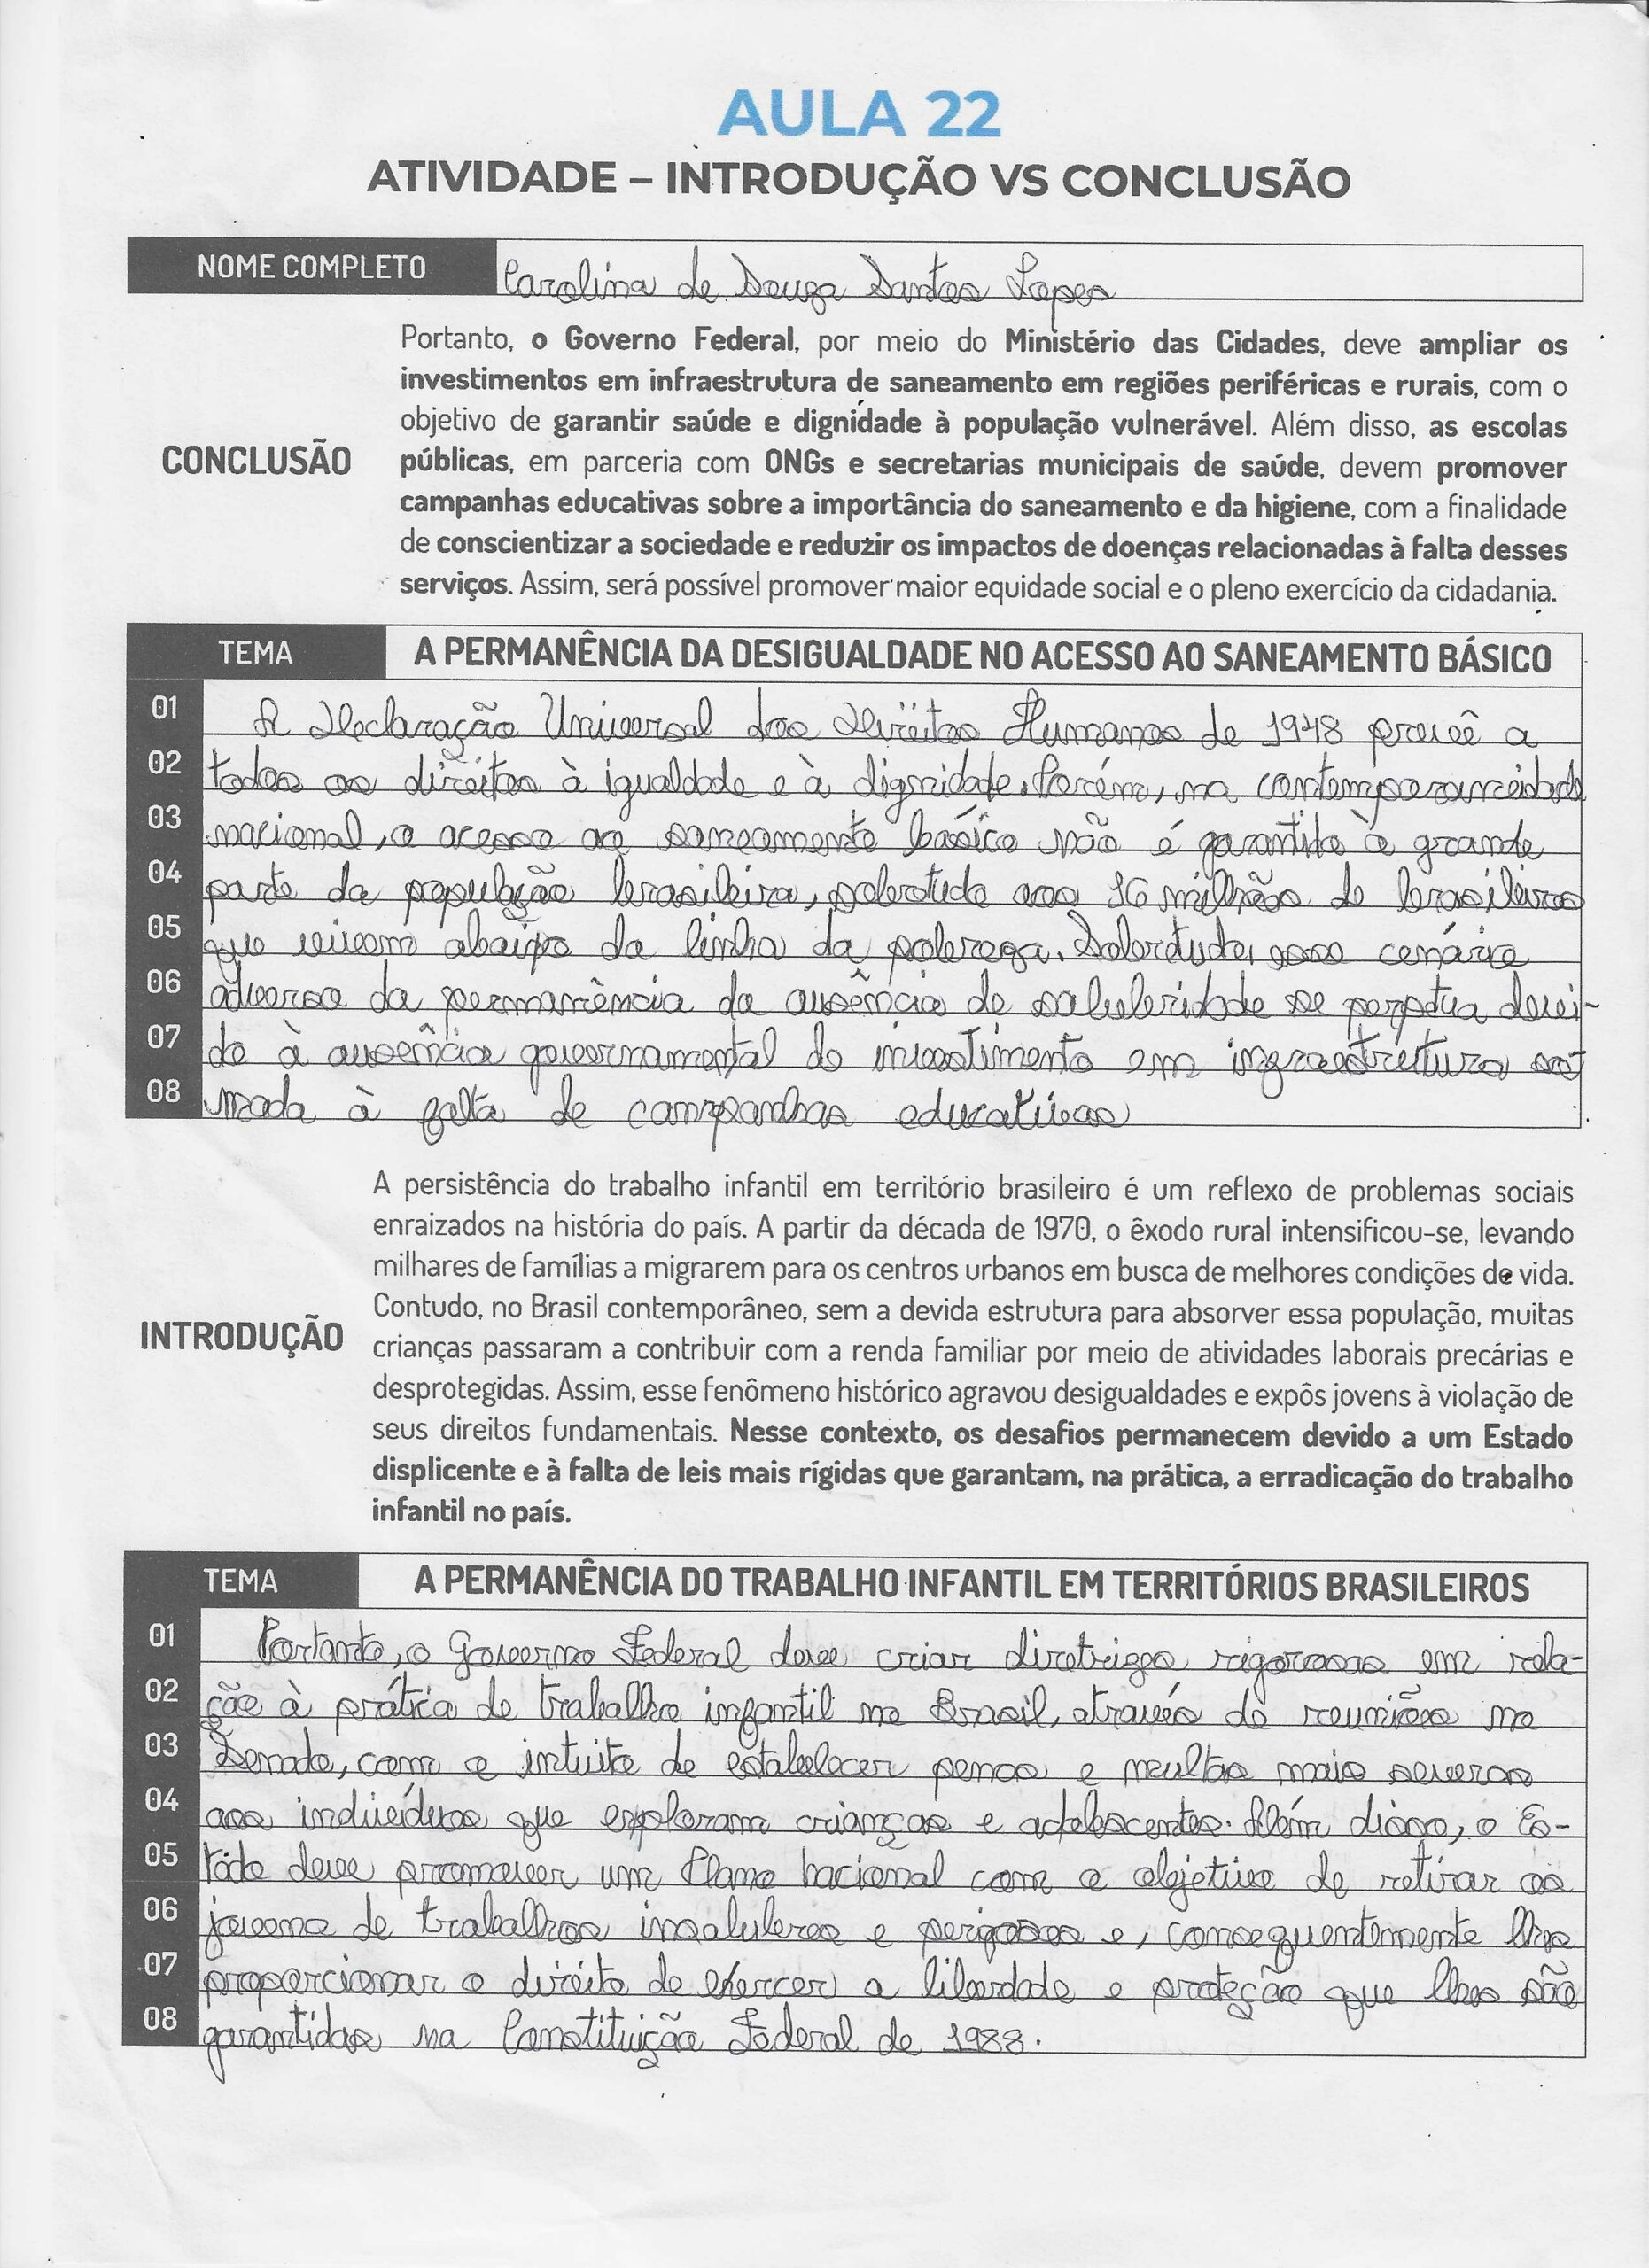 AULA 22
ATIVIDADE – INTRODUÇÃO VS CONCLUSÃO
NOME COMPLETO Carolina de Souza Santos Lopes
Portanto, o Governo Federal, por meio do Ministério das Cidades, deve ampliar os
investimentos em infraestrutura de saneamento em regiões periféricas e rurais, com o
objetivo de garantir saúde e dignidade à população vulnerável. Além disso, as escolas
CONCLUSÃO públicas, em parceria com ONGs e secretarias municipais de saúde, devem promover
campanhas educativas sobre a importância do saneamento e da higiene, com a finalidade
de conscientizar a sociedade e reduzir os impactos de doenças relacionadas à falta desses
serviços. Assim, será possível promover maior equidade social e o pleno exercício da cidadania.
TEMA A PERMANÊNCIA DA DESIGUALDADE NO ACESSO AO SANEAMENTO BÁSICO
01 A Declaração Universal dos Direitos Humanos de 1948 prevê a
02 todos os direitos à igualdade e à dignidade. Porém, na contemporaneidade
03 nacional, o acesso ao saneamento básico não é garantido à grande
04 parte da população brasileira, sobretudo aos 16 milhões de brasileiros
05 que vivem abaixo da linha da pobreza. Sobretudo, esse cenário
06 adverso da permanência da ausência de salubridade se perpetua devi-
07 do à ausência governamental de investimento em infraestrutura so-
08 mada à falta de campanhas educativas
A persistência do trabalho infantil em território brasileiro é um reflexo de problemas sociais
enraizados na história do país. A partir da década de 1970, o êxodo rural intensificou-se, levando
milhares de famílias a migrarem para os centros urbanos em busca de melhores condições de vida.
Contudo, no Brasil contemporâneo, sem a devida estrutura para absorver essa população, muitas
INTRODUÇÃO crianças passaram a contribuir com a renda familiar por meio de atividades laborais precárias e
desprotegidas. Assim, esse fenômeno histórico agravou desigualdades e expôs jovens à violação de
seus direitos fundamentais. Nesse contexto, os desafios permanecem devido a um Estado
displicente e à falta de leis mais rígidas que garantam, na prática, a erradicação do trabalho
infantil no país.
TEMA A PERMANÊNCIA DO TRABALHO INFANTIL EM TERRITÓRIOS BRASILEIROS
01 Portanto, o Governo Federal deve criar diretrizes rigorosas em rela-
02 ção à prática de trabalho infantil no Brasil, através de reuniões no
03 Senado, com o intuito de estabelecer penas e multas mais severas
04 aos indivíduos que exploram crianças e adolescentes. Além disso, o Es-
05 tado deve promover um Plano Nacional com o objetivo de retirar os
06 jovens de trabalhos insalubres e perigosos e, consequentemente lhes
07 proporcionar o direito de exercer a liberdade e proteção que lhes são
08 garantidas na Constituição Federal de 1988.